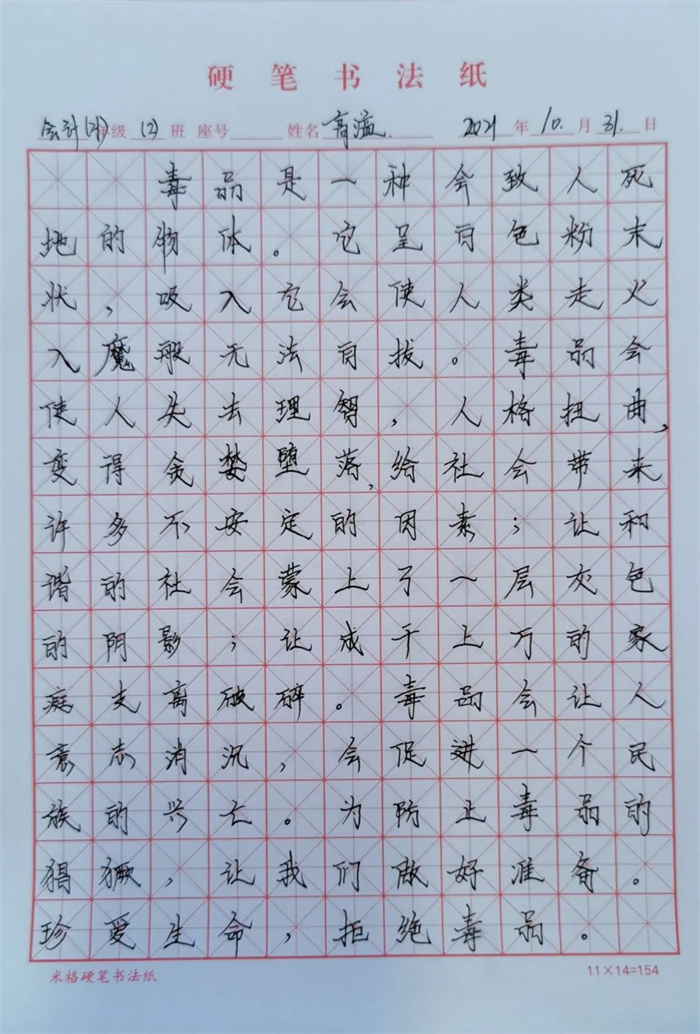 硬笔书法纸
会计(21)年级 (2) 班 座号 姓名 高溫. 2021 年 10. 月 31. 日
毒品是一种会致人死
地的物体。它呈白色粉末
状，吸入它会使人类走火
入魔般无法自拔。毒品会
使人失去理智，人格扭曲，
变得贪婪堕落，给社会带来
许多不安定的因素；让和
谐的社会蒙上了一层灰色
的阴影；让成千上万的家
庭支离破碎。毒品会让人
意志消沉，会促进一个民
族的兴亡。为防止毒品的
猖獗，让我们做好准备。
珍爱生命，拒绝毒品。
米格硬笔书法纸 11×14=154